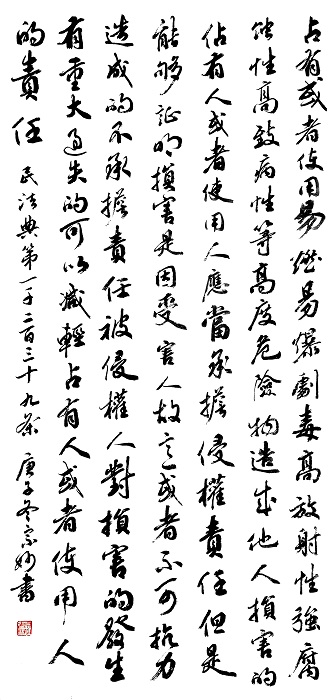 占有或者使用易燃易爆劇毒高放射性強腐
蝕性高致病性等高度危險物造成他人損害的
佔有人或者使用人應當承擔侵權責任但是
能够証明損害是因受害人故意或者不可抗力
造成的不承擔責任被侵權人對損害的發生
有重大過失的可以减輕占有人或者使用人
的責任 民法典第一千二百三十九条 庚子冬宗妙書